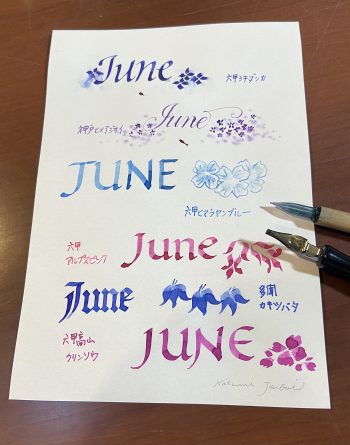 June
六甲シチダンカ
神戸ヒメアジサイ
June
JUNE
六甲ヒマラヤンブルー
六甲
アルプスピンク
June
June
多聞
カキツバタ
六甲高山
クリンソウ
JUNE